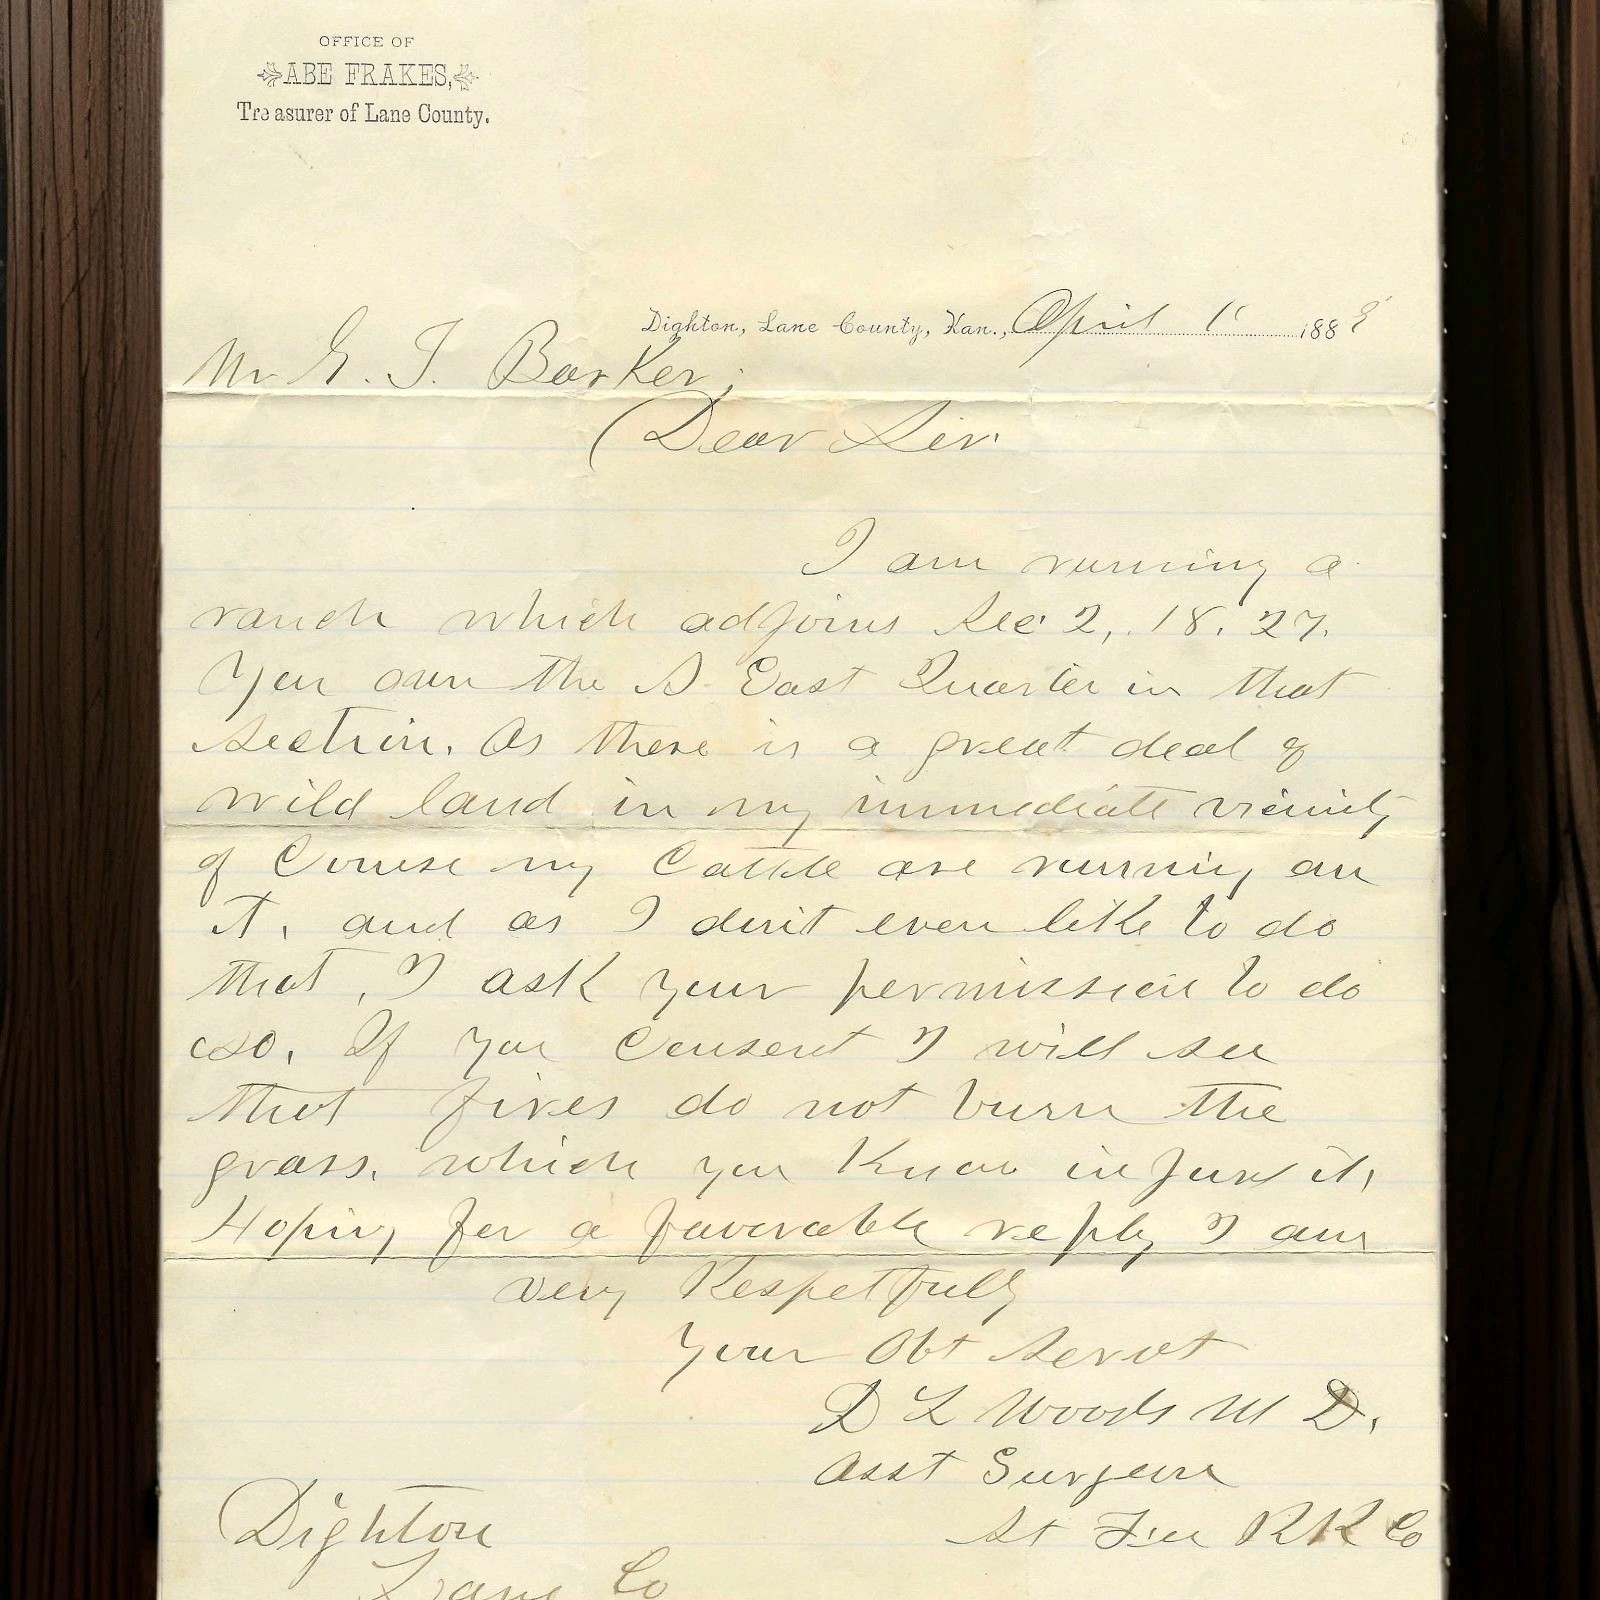 OFFICE OF
ABE FRAKES,
Treasurer of Lane County.
Dighton, Lane County, Kan., April 1 188
Mr G. J. Barker;
Dear Sir.
I am running a
ranch which adjoins Sec 2, 18. 27.
You own the S. East Quarter in that
section. As there is a great deal of
wild land in my immediate vicinity
of Course my Cattle are running on
it, and as I don't even like to do
that, I ask your permission to do
so. If you Consent I will see
that fires do not burn the
grass, which you know injure it,
Hoping for a favorable reply I am
very Respetfully
Your Obt Servt
D L Woods M D.
Asst Surgeon
St Fee RR Co
Dighton
Lane Co